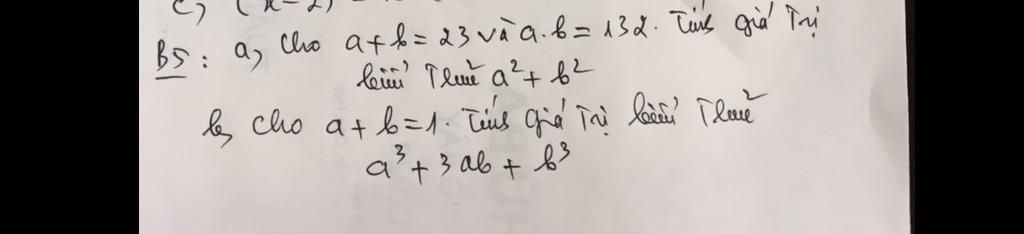 c, (x-2)
B5: a, Cho a+b=23 và a.b=132. Tính giá Trị
biểu Thức a²+b²
b, Cho a+b=1. Tính giá Trị biểu Thức
a³+3ab+b³